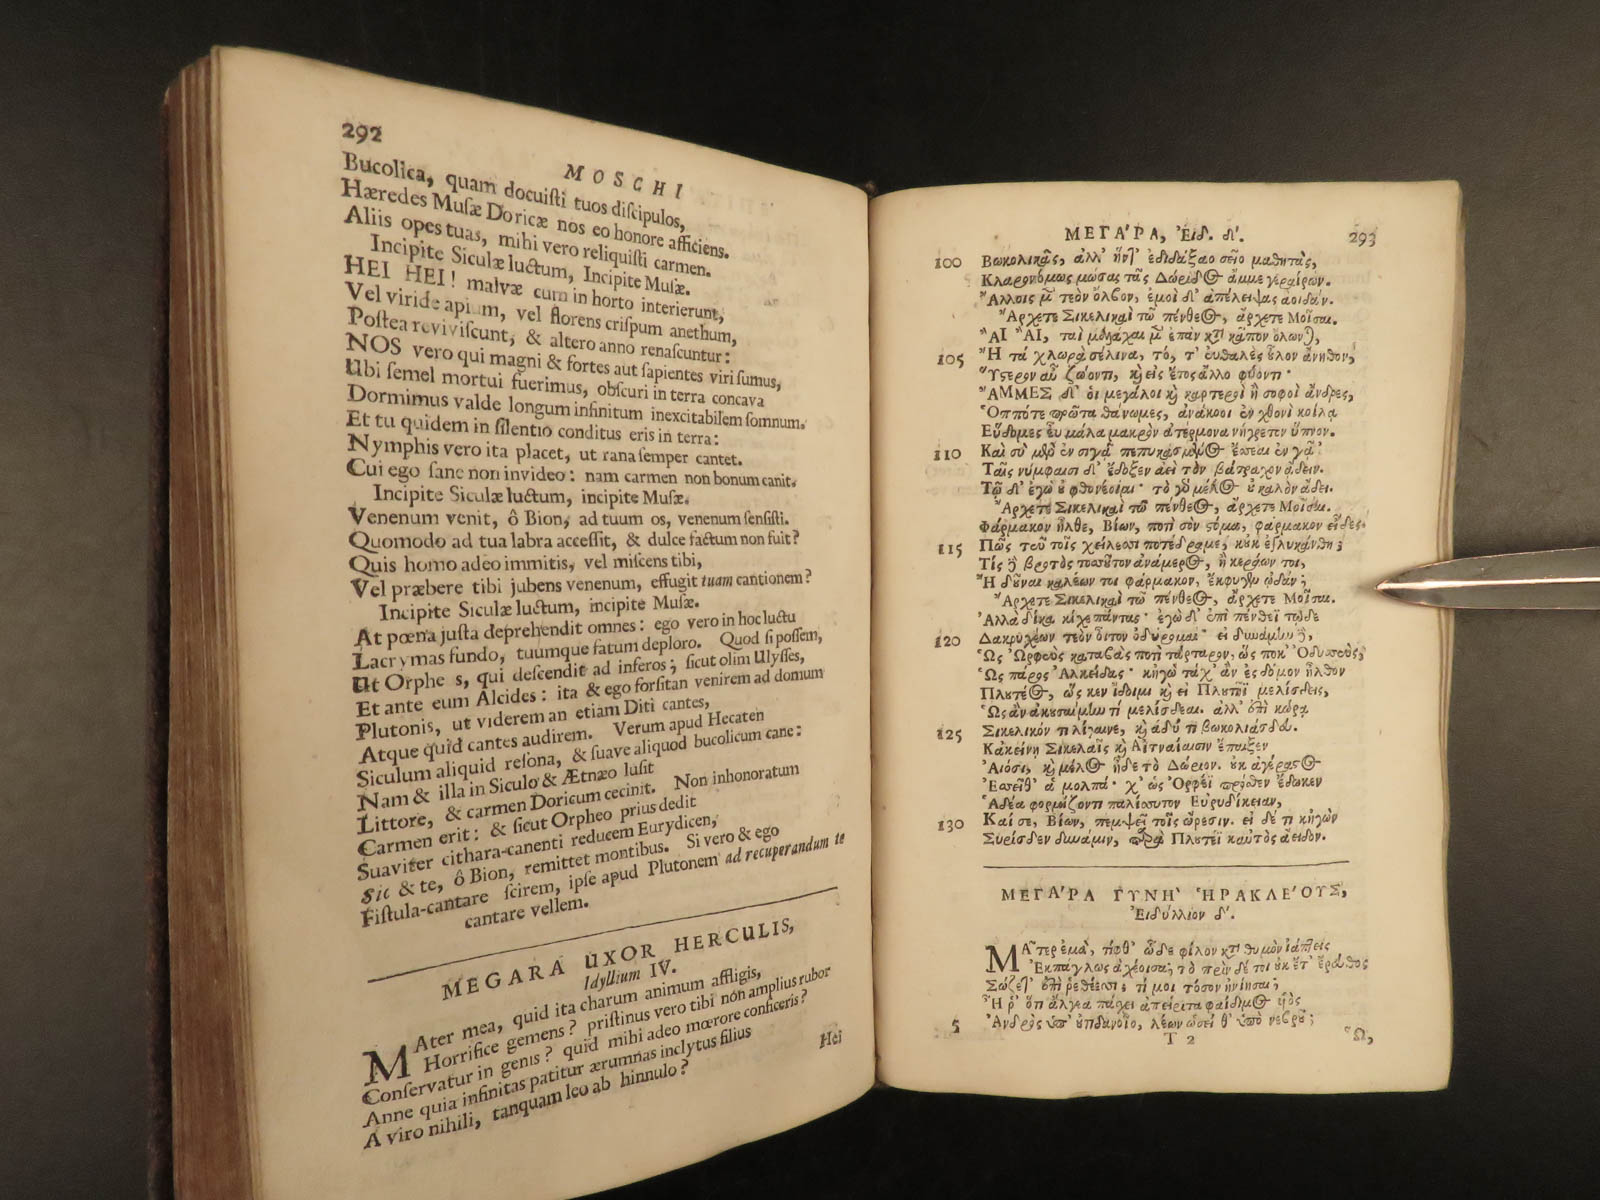 292
MOSCHI
Bucolica, quam docuiſti tuos diſcipulos,
Hæredes Muſæ Doricæ nos eo honore afficiens.
Aliis opes tuas, mihi vero reliquiſti carmen.
Incipite Siculæ luctum, Incipite Muſæ.
HEI HEI! malvæ cum in horto interierunt,
Vel viride apium, vel florens criſpum anethum,
Poſtea reviviſcunt, & altero anno renaſcuntur:
NOS vero qui magni & fortes aut ſapientes viri ſumus,
Ubi ſemel mortui fuerimus, obſcuri in terra concava
Dormimus valde longum infinitum inexcitabilem ſomnum.
Et tu quidem in ſilentio conditus eris in terra:
Nymphis vero ita placet, ut rana ſemper cantet.
Cui ego ſane non invideo: nam carmen non bonum canit.
Incipite Siculæ luctum, incipite Muſæ.
Venenum venit, ô Bion, ad tuum os, venenum ſenſiſti.
Quomodo ad tua labra acceſſit, & dulce factum non fuit?
Quis homo adeo immitis, vel miſcens tibi,
Vel præbere tibi jubens venenum, effugit tuam cantionem?
Incipite Siculæ luctum, incipite Muſæ.
At pœna juſta deprehendit omnes: ego vero in hoc luctu
Lacrymas fundo, tuumque fatum deploro. Quod ſi poſſem,
Ut Orphe s, qui deſcendit ad inferos; ſicut olim Ulyſſes,
Et ante eum Alcides: ita & ego forſitan venirem ad domum
Plutonis, ut viderem an etiam Diti cantes,
Atque quid cantes audirem. Verum apud Hecaten
Siculum aliquid reſona, & ſuave aliquod bucolicum cane:
Nam & illa in Siculo & Ætnæo luſit
Littore, & carmen Doricum cecinit. Non inhonoratum
Carmen erit: & ſicut Orpheo prius dedit
Suaviter cithara-canenti reducem Eurydicen,
Sic & te, ô Bion, remittet montibus. Si vero & ego
Fiſtula-cantare ſcirem, ipſe apud Plutonem ad recuperandum te
cantare vellem.
MEGARA UXOR HERCULIS,
Idyllium IV.
MAter mea, quid ita charum animum affligis,
Horrifice gemens? priſtinus vero tibi non amplius rubor
Conſervatur in genis? quid mihi adeo mœrore conficeris?
Anne quia infinitas patitur ærumnas inclytus filius
A viro nihili, tanquam leo ab hinnulo?
Hei
ΜΕΓΑ'ΡΑ, Ἐιδ. δ'.
293
100 Βωκολικᾶς, ἀλλ' ἥν ἐδιδάξαο σεῖο μαθητὰς,
Κλαρονόμως μώσας τᾶς Δωρίδος ἄμμε γεραίρων.
Ἄλλοις μὲν τεὸν ὄλβον, ἐμοὶ δ' ἀπέλειψας ἀοιδάν.
Ἄρχετε Σικελικαὶ τῶ πένθεος, ἄρχετε Μοῖσαι.
ἎΙ ἎΙ, ταὶ μαλάχαι μὲν ἐπὰν κατὰ κᾶπον ὄλωνται,
105 Ἢ τὰ χλωρὰ σέλινα, τό, τ' εὐθαλὲς οὖλον ἄνηθον,
Ὕστερον αὖ ζώοντι, καὶ εἰς ἔτος ἄλλο φύοντι·
ἌΜΜΕΣ δ' οἱ μεγάλοι καὶ καρτεροὶ ἢ σοφοὶ ἄνδρες,
Ὁππότε πρῶτα θάνωμες, ἀνάκοοι ἐν χθονὶ κοίλᾳ
Εὕδομες εὖ μάλα μακρὸν ἀτέρμονα νήγρετον ὕπνον.
110 Καὶ σὺ μὲν ἐν σιγᾷ πεπυκασμένος ἔσσεαι ἐν γᾷ·
Ταῖς νύμφαισι δ' ἔδοξεν ἀεὶ τὸν βάτραχον ἄδειν.
Τῷ δ' ἐγὼ οὐ φθονέοιμι· τὸ γὰρ μέλος οὐ καλὸν ἄδει.
Ἄρχετε Σικελικαὶ τῶ πένθεος, ἄρχετε Μοῖσαι.
Φάρμακον ἦλθε, Βίων, ποτὶ σὸν στόμα, φάρμακον εἶδες.
115 Πῶς τευ τοῖς χείλεσσι ποτέδραμε, κοὐκ ἐγλυκάνθη;
Τίς δὲ βροτὸς τοσσοῦτον ἀνάμερος, ἢ κεράσαι τοι,
Ἢ δοῦναι καλέων τοι φάρμακον, ἔκφυγεν ᾠδάν;
Ἄρχετε Σικελικαὶ τῶ πένθεος, ἄρχετε Μοῖσαι.
Ἀλλὰ δίκα κίχε πάντας· ἐγὼ δ' ἐπὶ πένθεϊ τῷδε
120 Δακρυχέων τεὸν οἶτον ὀδύρομαι· εἰ δυνάμην δὲ,
Ὡς Ὀρφεὺς καταβὰς ποτὶ τάρταρον, ὥς ποκ' Ὀδυσσεὺς,
Ὡς πάρος Ἀλκείδας· κἠγὼ τάχ' ἂν ἐς δόμον ἦλθον
Πλουτέος, ὥς κεν ἴδοιμι καὶ εἰ Πλουτῆϊ μελίσδεις,
Ὡς ἂν ἀκουσαίμην τί μελίσδεαι. ἀλλ' ἐπὶ κώρᾳ
125 Σικελικόν τι λίγαινε, καὶ ἁδύ τι βωκολιάσδου.
Κἀκείνη Σικελαῖς καὶ Αἰτναίαισιν ἔπαιξεν
Ἀϊόσι, καὶ μέλος ᾖδε τὸ Δώριον. οὐκ ἀγέραστος
Ἐσσεῖθ' ἁ μολπά· χ' ὡς Ὀρφέϊ πρόσθεν ἔδωκεν
Ἁδέα φορμίζοντι παλίσσυτον Εὐρυδίκειαν,
130 Καί σε, Βίων, πέμψει τοῖς ὤρεσιν. εἰ δέ τι κἠγὼν
Συρίσδεν δυνάμαν, παρὰ Πλουτέϊ καὐτὸς ἄειδον.
ΜΕΓΑ'ΡΑ ΓΥΝΗ' ἩΡΑΚΛΕ'ΟΥΣ,
Ἐιδύλλιον δ'.
ΜΑ͂τερ ἐμὰ, τίφθ' ὧδε φίλον κατὰ θυμὸν ἰάπτεις
Ἐκπάγλως ἀχέουσα; τὸ πρὶν δέ τοι οὐκ ἔτ' ἔρευθος
Σώζετ' ἐπὶ ῥεθέεσσι; τί μοι τόσον ἠνίησαι;
Ἦ ῥ' ὅτι ἄλγεα πάσχει ἀπείριτα φαίδιμος υἱὸς
5 Ἀνδρὸς ὑπ' οὐτιδανοῖο, λέων ὡσεί θ' ὑπὸ νεβροῦ;
T 2
Ὤ,